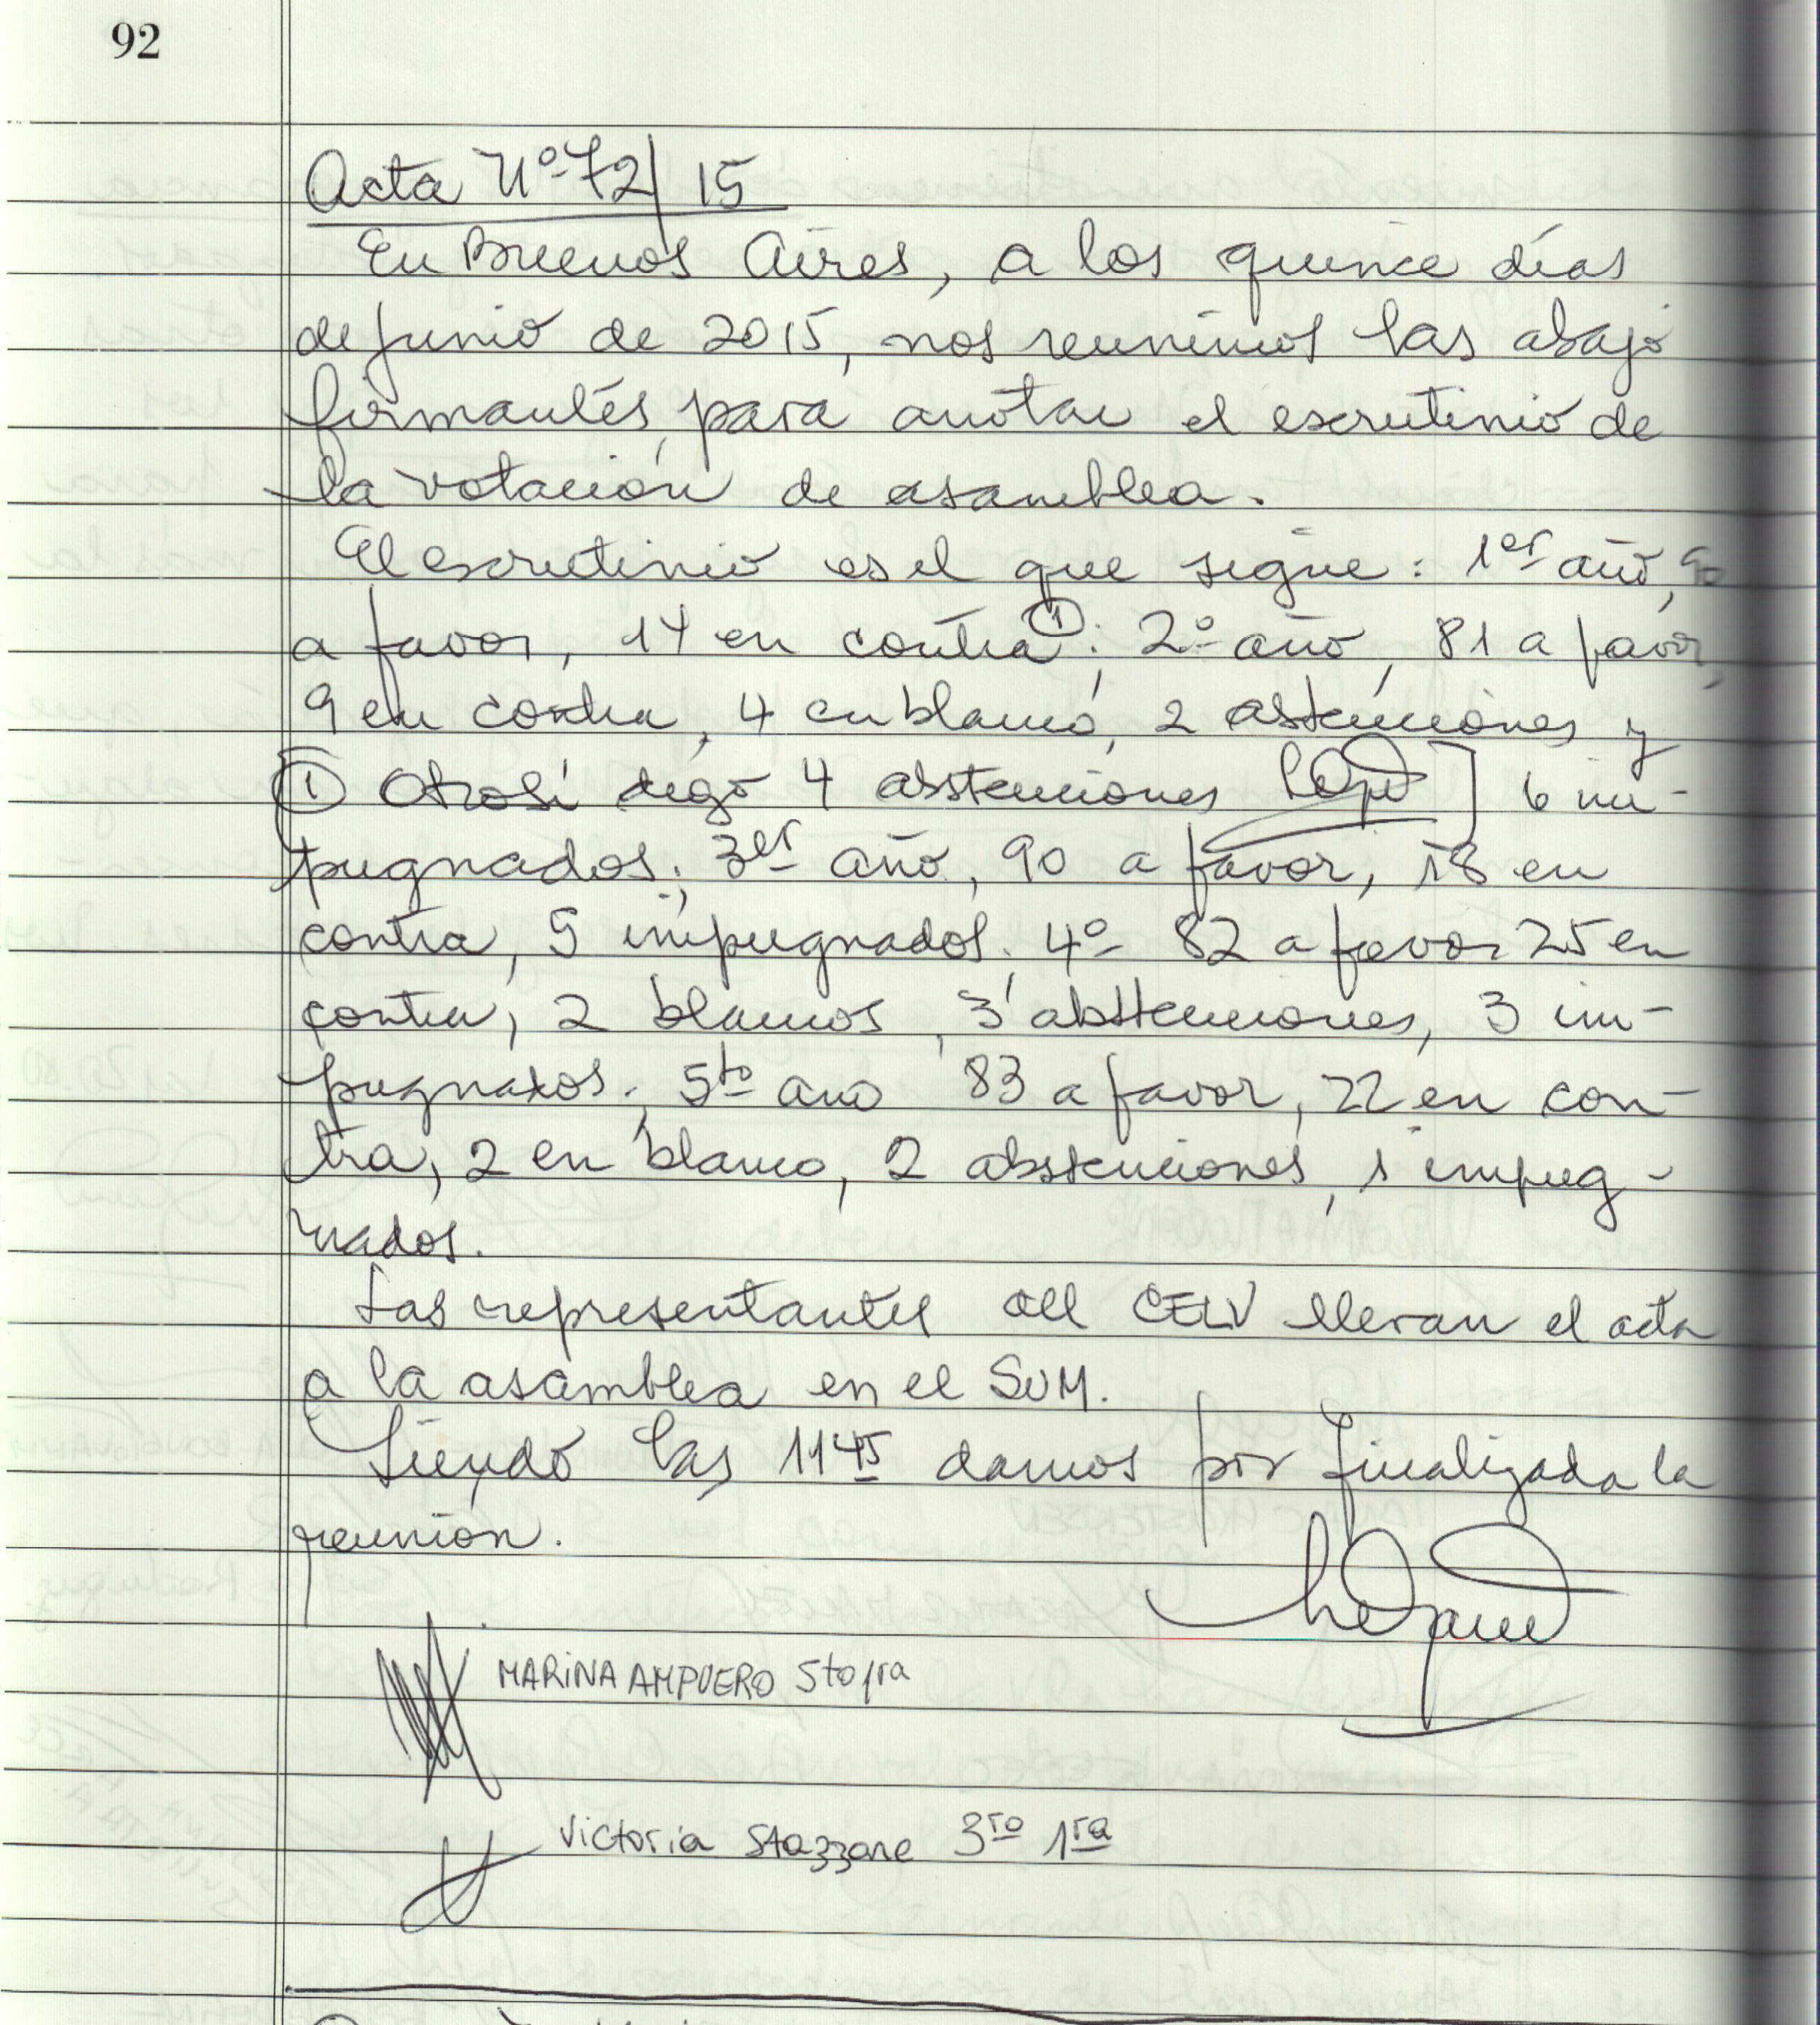 92
Acta Nº 72/15
En Buenos Aires, a los quince días
de junio de 2015, nos reunimos las abajo
firmantes, para anotar el escrutinio de
la votación de asamblea.
El escrutinio es el que sigue: 1er año, 90
a favor, 14 en contra ①; 2º año, 81 a favor,
9 en contra, 4 en blanco, 2 astenciones y
① Otrosí digo 4 abstenciones ] 6 im-
pugnados; 3er año, 90 a favor, 18 en
contra, 5 impugnados; 4º 82 a favor 25 en
contra, 2 blancos, 3 abstenciones, 3 im-
pugnados; 5to año 83 a favor, 22 en con-
tra, 2 en blanco, 2 abstenciones, 1 impug-
nados.
Las representantes del CELV llevan el acta
a la asamblea en el SUM.
Siendo las 11 45 damos por finalizada la
reunión.
MARINA AMPUERO 5to 1ra
Victoria Stazzone 3ro 1ra